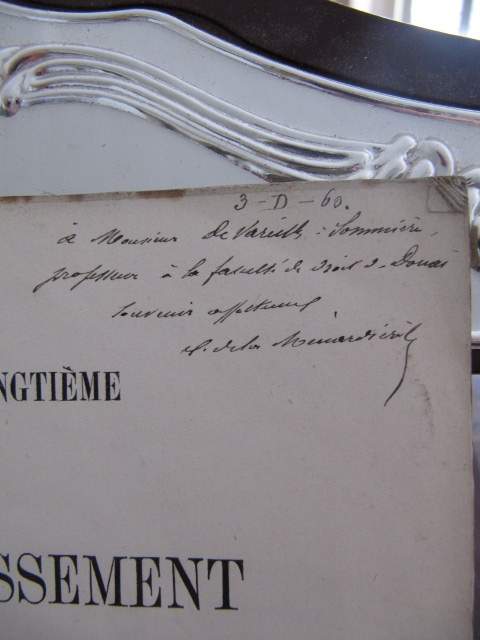 3-D-60.
à Monsieur de Vareilles-Sommières,
professeur à la faculté de droit de Douai
souvenir affectueux
C. de la Ménardière
NGTIÈME
SSEMENT